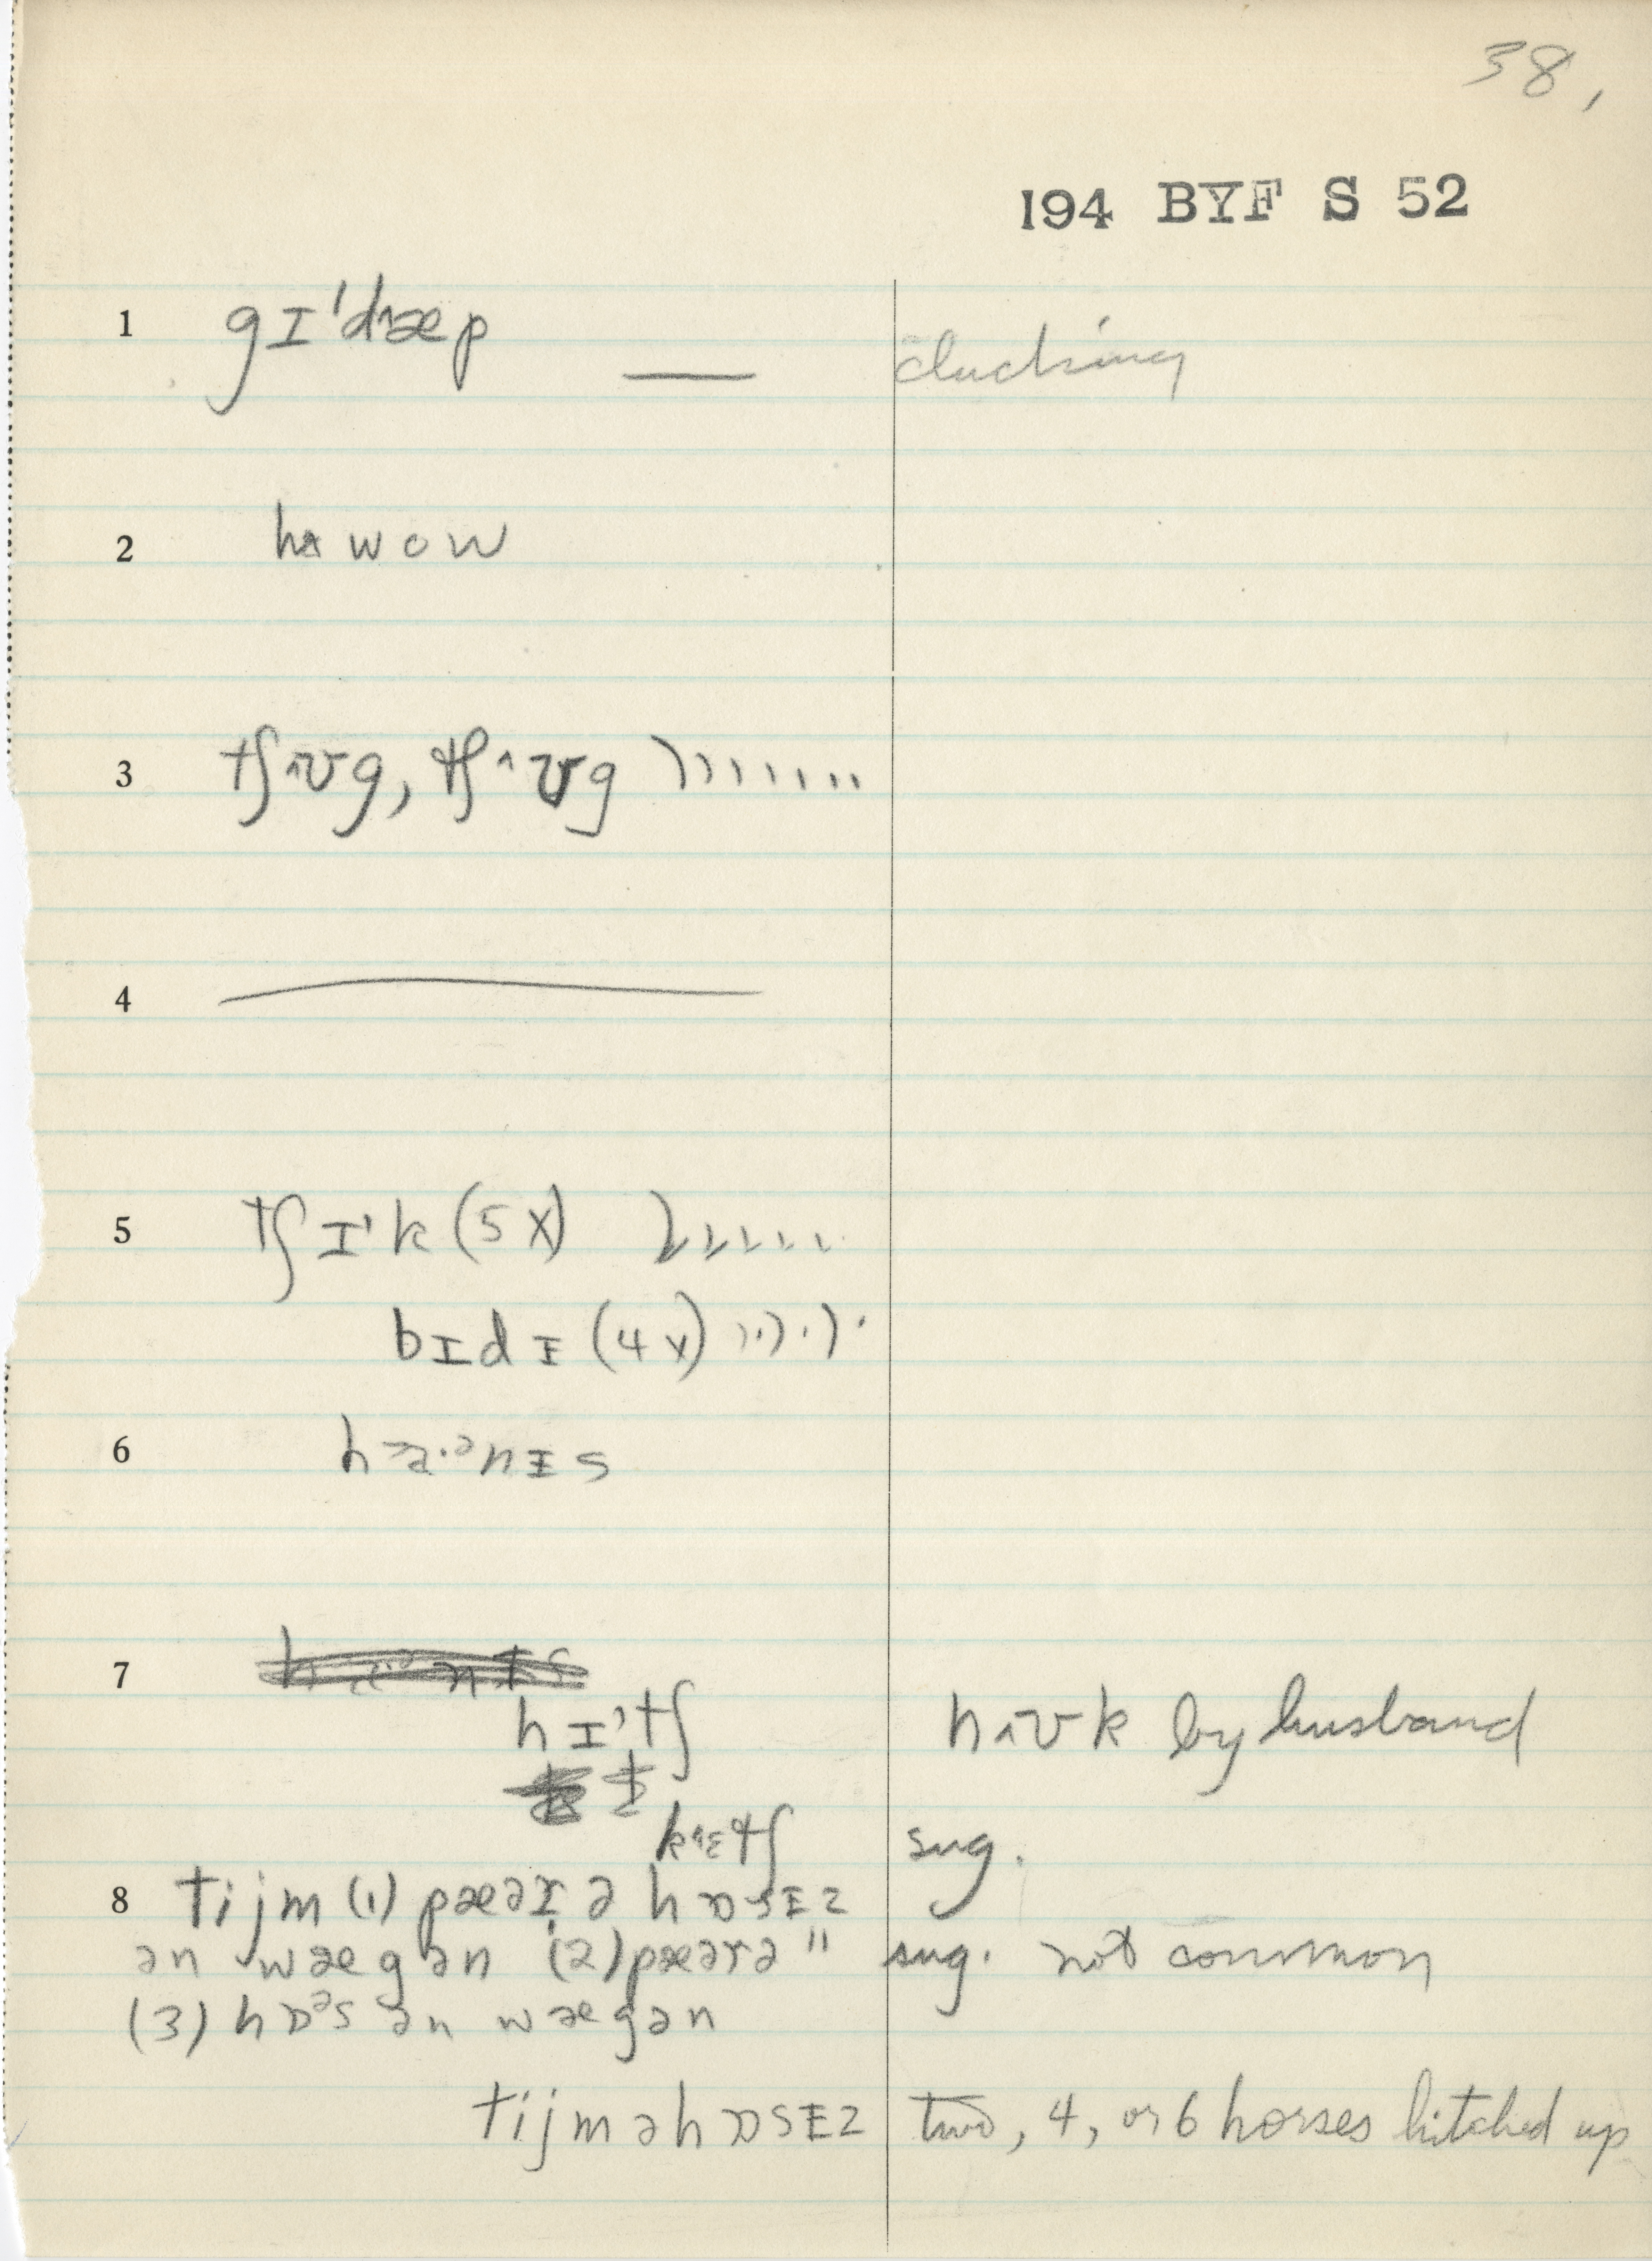 38,
194 BYF S 52
1 gɪ'd^æp — clucking
2 hʌ wow
3 tʃ^ʊg, tʃ^ʊg
4 —
5 tʃɪ'k (5x)
bɪdɪ (4x)
6
7
hɪ'tʃ h^ʊk by husband
k^ɛtʃ sug.
8 tijm (1) pæəɪ ə hɒsɪz
ən wægən (2) pæərə " sug. not common
(3) hɒᵊs ən wægən
tijm ə hɒsɪz two, 4, or 6 horses hitched up